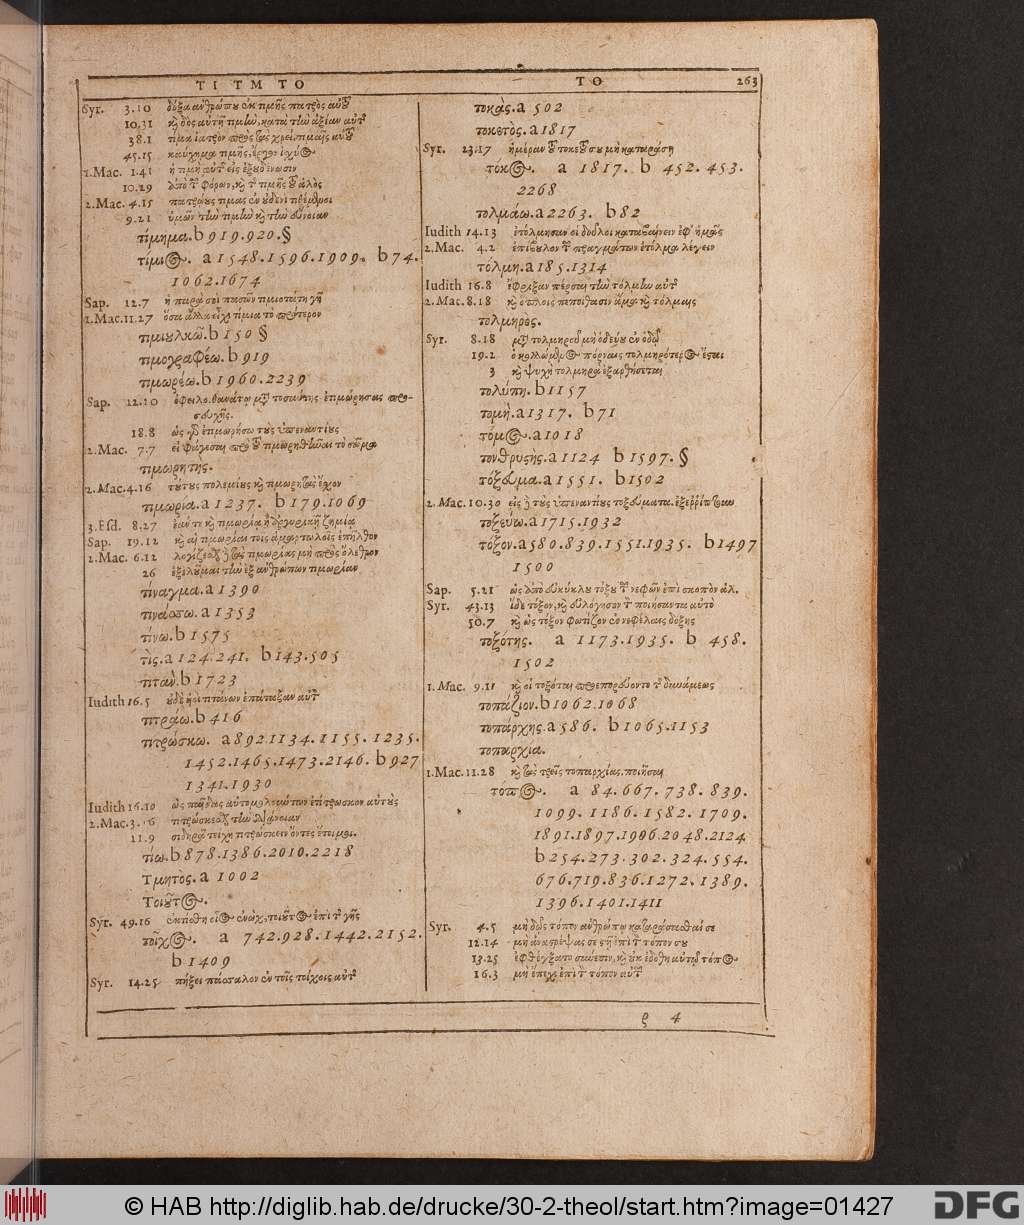 ΤΙ ΤΜ ΤΟ
ΤΟ
263
Syr. 3.10 δόξα ἀνθρώπου ἐκ τιμῆς πατρὸς αὐτοῦ
10.31 καὶ δὸς αὐτῇ τιμὴν, κατὰ τὴν ἀξίαν αὐτῆς
38.1 τίμα ἰατρὸν πρὸς τὰς χρείας τιμαῖς αὐτοῦ
45.15
1.Mac. 1.41 ἡ τιμὴ αὐτῆς εἰς ἐξουδένωσιν
10.29 ἀπὸ τῶν φόρων, καὶ τῆς τιμῆς τοῦ ἁλὸς
2.Mac. 4.15
9.21 ὑμῶν τὴν τιμὴν καὶ τὴν εὔνοιαν
τίμημα. b 919.920. §
τίμιος. a 1548.1596.1909. b 74.
1062.1674
Sap. 12.7 ἡ παρὰ σοὶ πασῶν τιμιωτάτη γῆ
2.Mac. 11.27
τιμιουλκῶ. b 150 §
τιμογραφέω. b 919
τιμωρέω. b 1960.2239
Sap. 12.10
18.8
2.Mac. 7.7 εἰ φάγεσαι πρὸ τοῦ τιμωρηθῆναι τὸ σῶμα
τιμωρητής.
2.Mac. 4.16 τούτους πολεμίους καὶ τιμωρητὰς ἔχον
τιμωρία. a 1237. b 179.1069
3.Esd. 8.27
Sap. 19.12 καὶ αἱ τιμωρίαι τοῖς ἁμαρτωλοῖς ἐπῆλθον
2.Mac. 6.12 λογίζεσθαι τὰς τιμωρίας μὴ πρὸς ὄλεθρον
26 ἐξελοῦμαι τὴν ἐξ ἀνθρώπων τιμωρίαν
τίναγμα. a 1390
τινάσσω. a 1353
τίνω. b 1575
τὶς. a 124.241. b 143.505
τιτὰν. b 1723
Iudith 16.5 οὐδὲ υἱοὶ τιτάνων ἐπάταξαν αὐτὸν
τιτράω. b 416
τιτρώσκω. a 892.1134.1155.1235.
1452.1465.1473.2146. b 927
1341.1930
Iudith 16.10
2.Mac. 3.16 τιτρώσκεσθαι τὴν διάνοιαν
11.9 σιδηρᾶ τείχη τιτρώσκειν ὄντες ἕτοιμοι.
τίω. b 878.1386.2010.2218
Τμητος. a 1002
Τοιοῦτος.
Syr. 49.16
τοῖχος. a 742.928.1442.2152.
b 1409
Syr. 14.25 πήξει πάσσαλον ἐν τοῖς τοίχοις αὐτῆς
τοκάς. a 502
τοκετὸς. a 1817
Syr. 23.17 ἡμέραν τοῦ τοκετοῦ σου μὴ καταράσῃ
τόκος. a 1817. b 452.453.
2268
τολμάω. a 2263. b 82
Iudith 14.13 ἐτόλμησαν οἱ δοῦλοι καταβαίνειν ἐφ' ἡμᾶς
2.Mac. 4.2 ἐπίβουλον τῶν πραγμάτων ἐτόλμα λέγειν
τόλμη. a 185.1314
Iudith 16.8 ἔφριξαν πέρσαι τὴν τόλμαν αὐτῆς
2.Mac. 8.18 καὶ ὅπλοις πεποίθασιν ἅμα καὶ τόλμαις
τολμηρὸς.
Syr. 8.18 μετὰ τολμηροῦ μὴ ὁδεύου ἐν ὁδῷ
19.2 ὁ κολλώμενος πόρναις τολμηρότερος ἔσται
3 καὶ ψυχὴ τολμηρὰ ἐξαρθήσεται
τολύπη. b 1157
τομὴ. a 1317. b 71
τόμος. a 1018
τονθρυσὴς. a 1124 b 1597. §
τόξευμα. a 1551. b 1502
2.Mac. 10.30
τοξεύω. a 1715.1932
τόξον. a 580.839.1551.1935. b 1497
1500
Sap. 5.21 ὡς ἀπὸ εὐκύκλου τόξου τῶν νεφῶν ἐπὶ σκοπὸν ἁλ.
Syr. 43.13 ἴδε τόξον, καὶ εὐλόγησον τὸν ποιήσαντα αὐτὸ
50.7 καὶ ὡς τόξον φωτίζον ἐν νεφέλαις δόξης
τοξότης. a 1173.1935. b 458.
1502
1.Mac. 9.11 καὶ οἱ τοξόται προεπορεύοντο τῆς δυνάμεως
τοπάζιον. b 1062.1068
τοπάρχης. a 586. b 1065.1153
τοπαρχία.
1.Mac. 11.28 καὶ τὰς τρεῖς τοπαρχίας. ποιῆσαι
τόπος. a 84.667.738.839.
1099.1186.1582.1709.
1891.1897.1906.2048.2124
b 254.273.302.324.554.
676.719.836.1272.1389.
1396.1401.1411
Syr. 4.5 μὴ δῷς τόπον ἀνθρώπῳ καταράσασθαί σε
12.14
13.25
16.3 μὴ ἔπεχε ἐπὶ τὸν τόπον αὐτῶν
ϱ 4
© HAB http://diglib.hab.de/drucke/30-2-theol/start.htm?image=01427
DFG